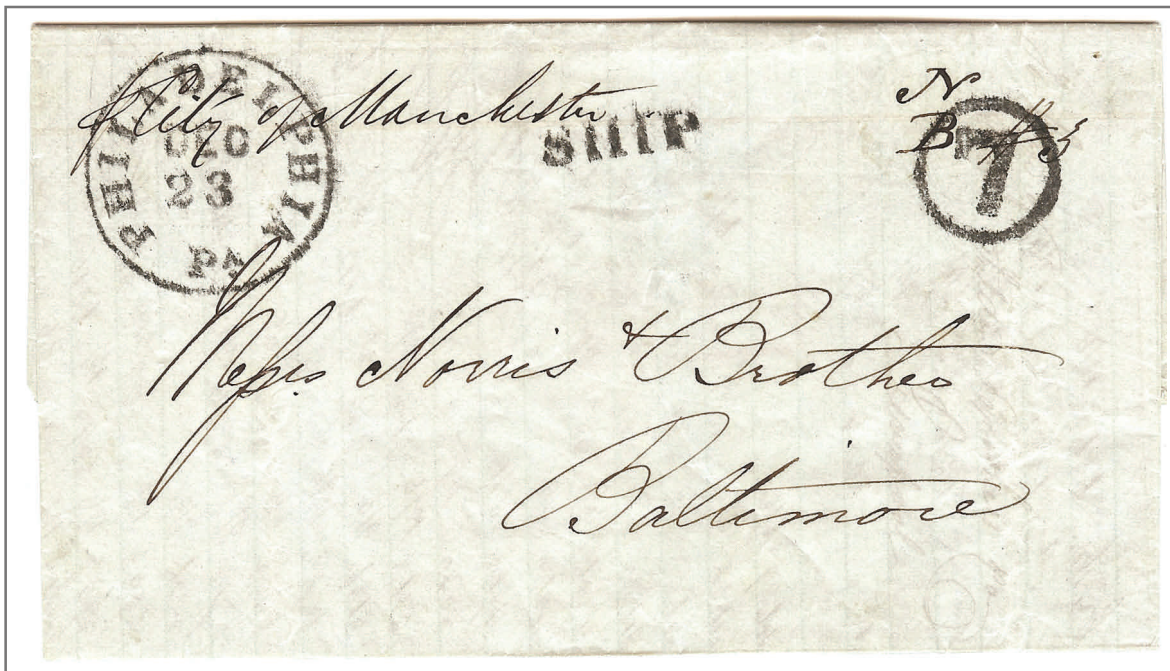 PHILADELPHIA
DEC
23
PA
p City of Manchester
SHIP
N
B
7
Messrs. Norris & Brother
Baltimore